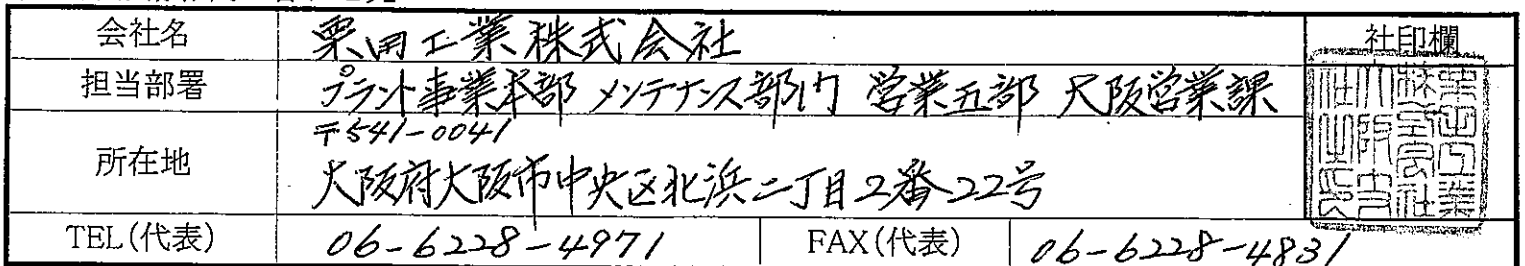 会社名 栗田工業株式会社 社印欄
担当部署 プラント事業本部 メンテナンス部門 営業五部 大阪営業課
〒541-0041
所在地 大阪府大阪市中央区北浜二丁目2番22号
TEL(代表) 06-6228-4971 FAX(代表) 06-6228-4831